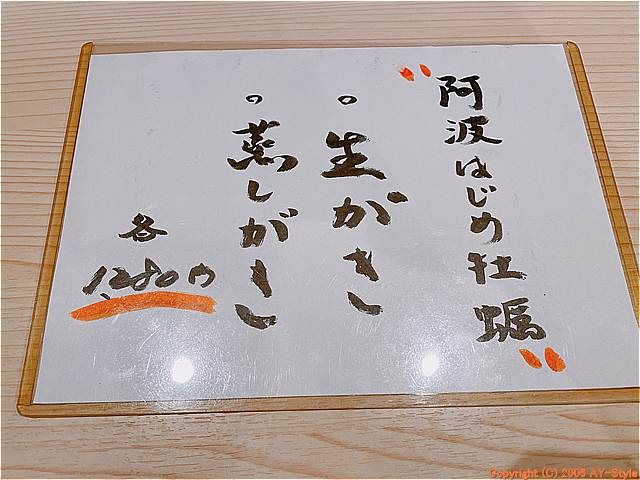 〝阿波はじめ牡蠣〟
○生がき
○蒸しがき
各
1,280円
Copyright (C) 2005 AY-Style